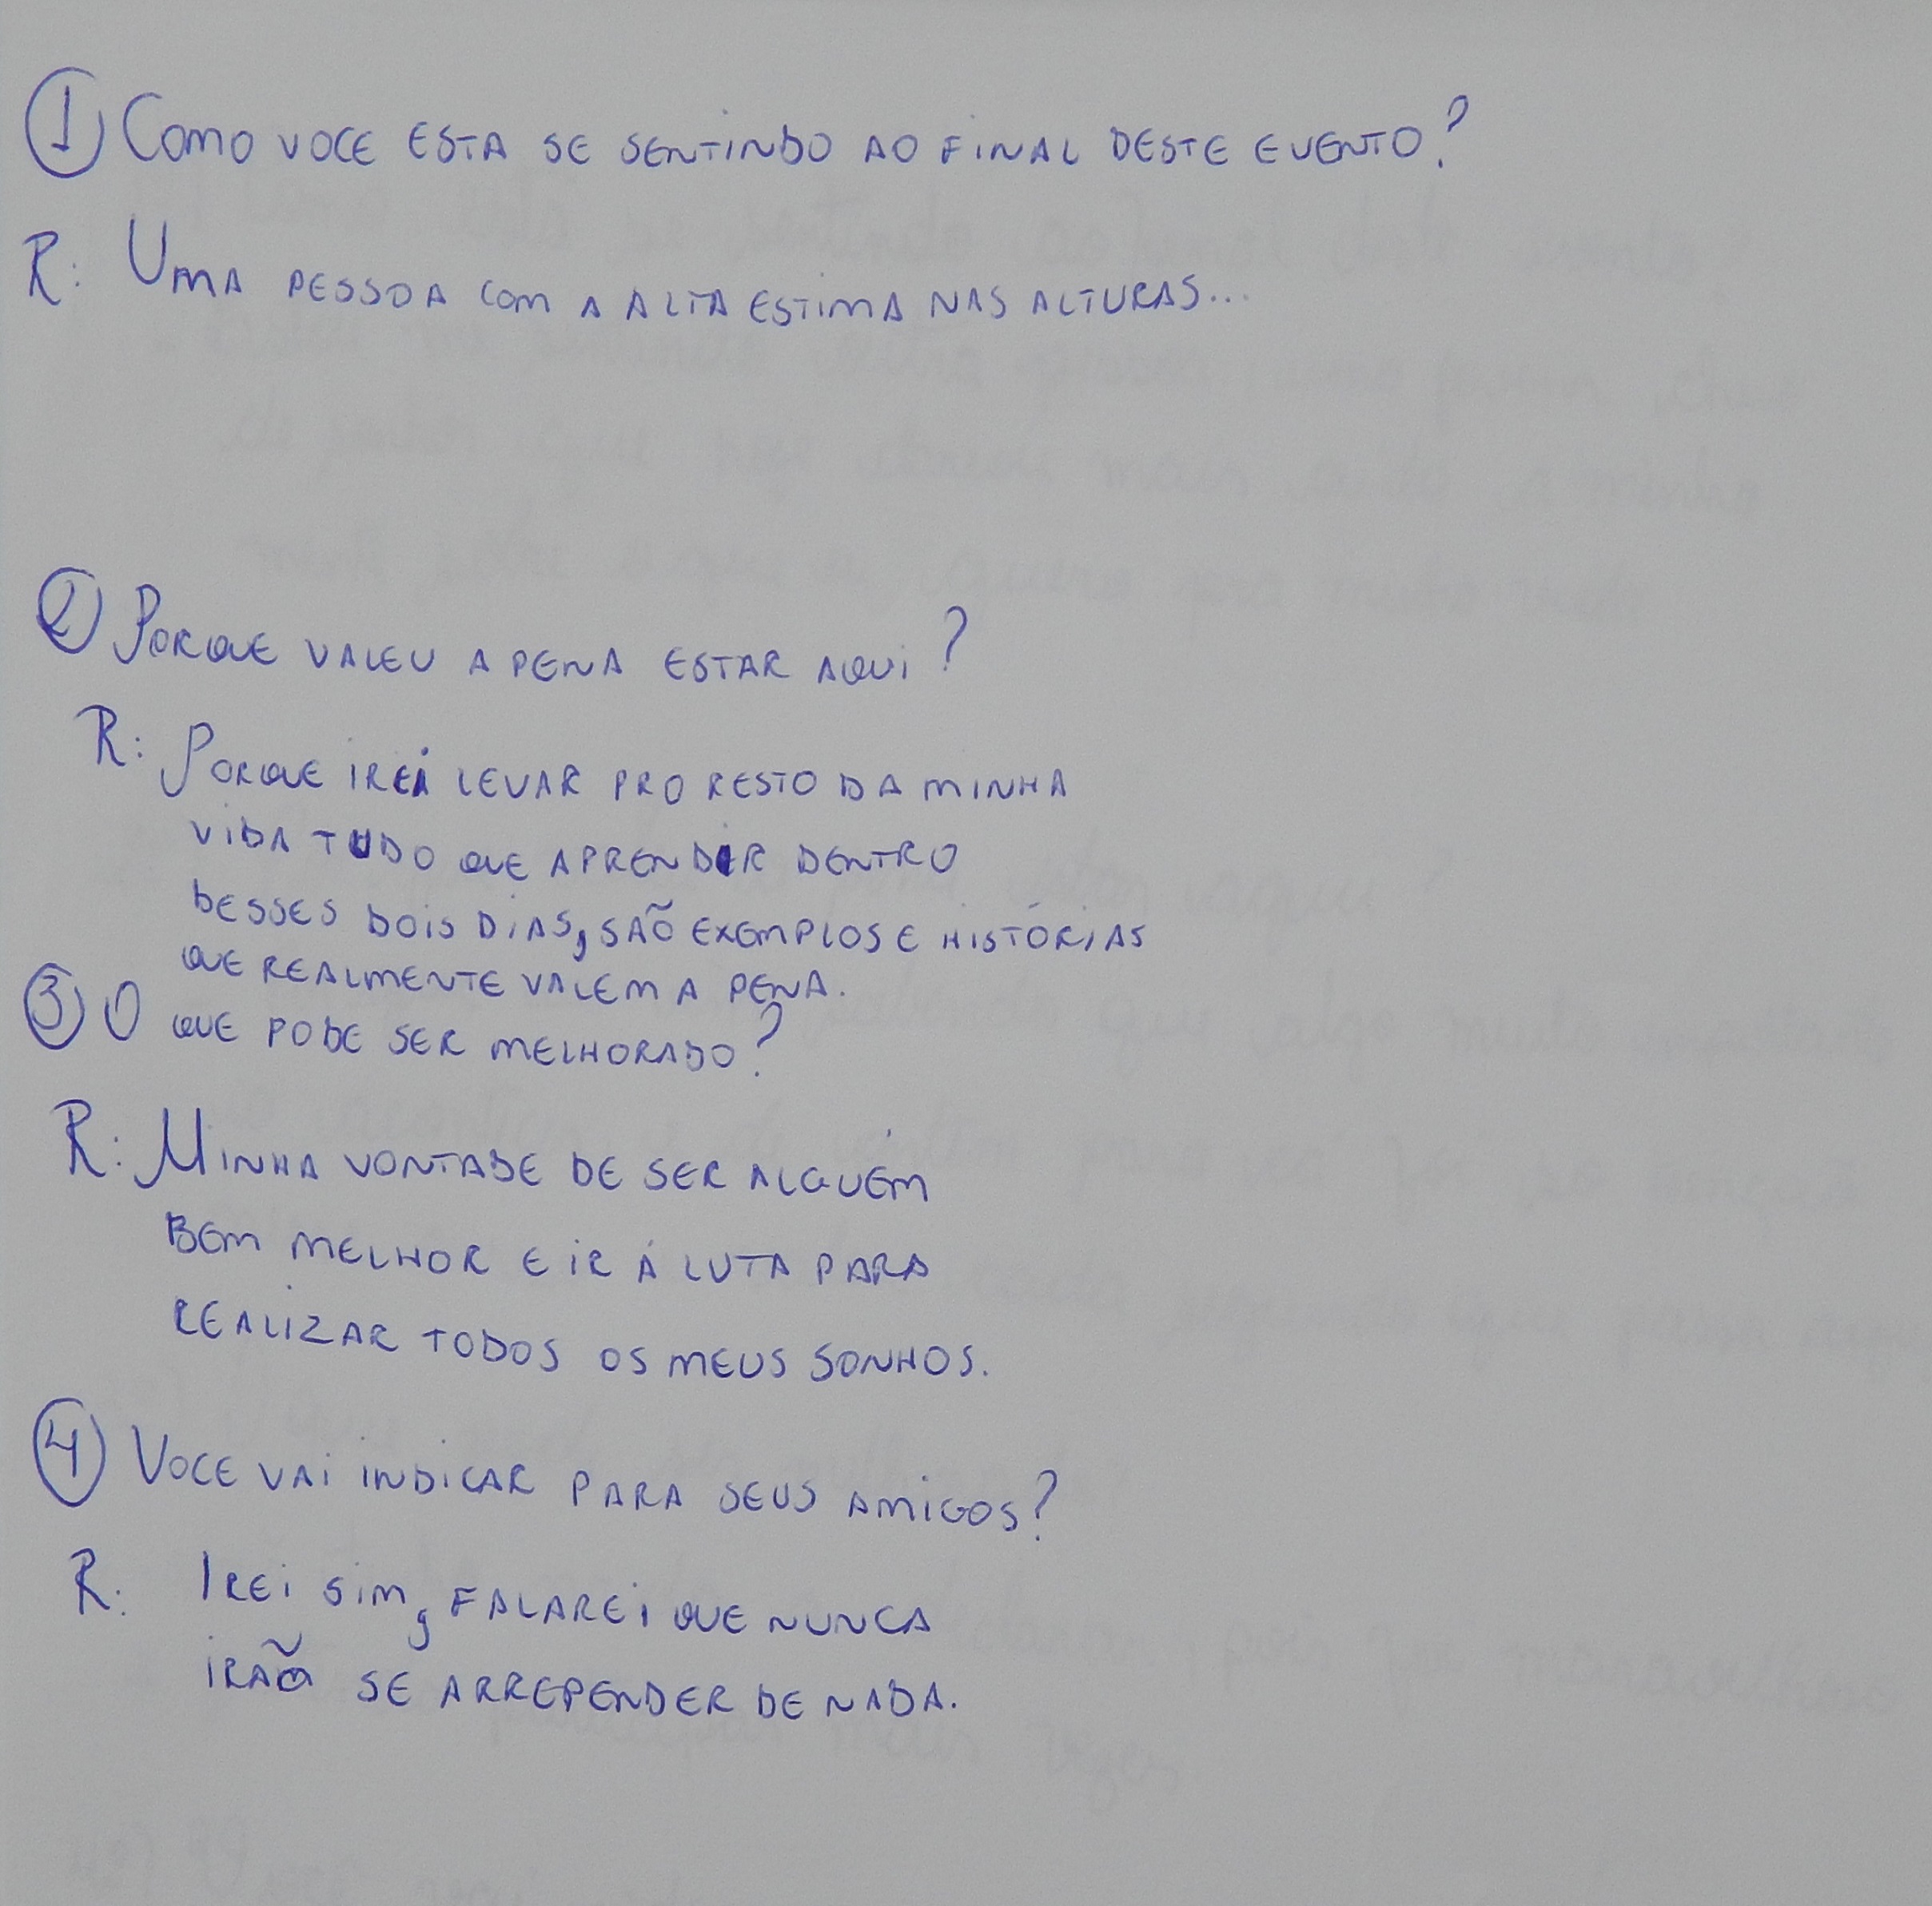 ① COMO VOCE ESTA SE SENTINDO AO FINAL DESTE EVENTO?
R: UMA PESSOA COM A ALTA ESTIMA NAS ALTURAS...
② PORQUE VALEU A PENA ESTAR AQUI?
R: PORQUE IREI LEVAR PRO RESTO DA MINHA
VIDA TUDO QUE APRENDIR DENTRO
DESSES DOIS DIAS, SÃO EXEMPLOS E HISTÓRIAS
QUE REALMENTE VALEM A PENA.
③ O QUE PODE SER MELHORADO?
R: MINHA VONTADE DE SER ALGUÉM
BEM MELHOR E IR Á LUTA PARA
REALIZAR TODOS OS MEUS SONHOS.
④ VOCE VAI INDICAR PARA SEUS AMIGOS?
R: IREI SIM, FALAREI QUE NUNCA
IRÃO SE ARREPENDER DE NADA.